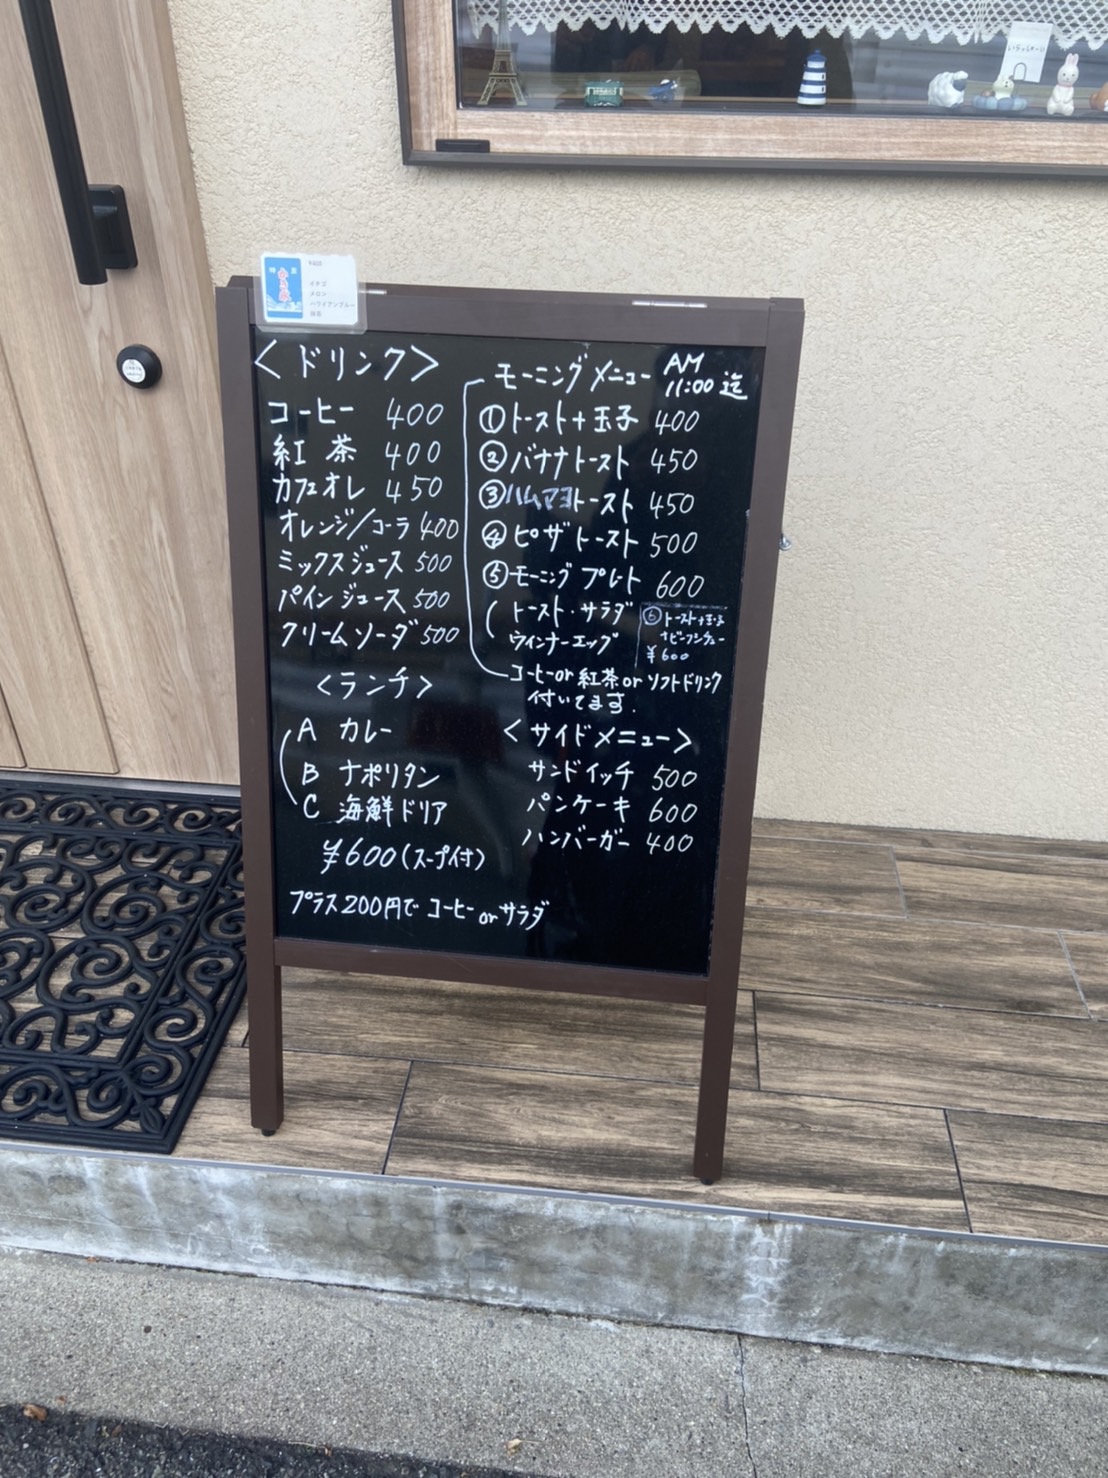 いらっしゃーい
¥400
イチゴ
メロン
ハワイアンブルー
抹茶
<ドリンク>
コーヒー 400
紅茶 400
カフェオレ 450
オレンジ/コーラ 400
ミックスジュース 500
パインジュース 500
クリームソーダ 500
<ランチ>
A カレー
B ナポリタン
C 海鮮ドリア
¥600(スープ付)
プラス200円でコーヒーorサラダ
モーニングメニュー AM 11:00迄
①トースト+玉子 400
②バナナトースト 450
③ハムマヨトースト 450
④ピザトースト 500
⑤モーニングプレート 600
トースト・サラダ
ウインナーエッグ
⑥トースト+玉子
+ビーフシチュー
¥600
コーヒーor紅茶orソフトドリンク
付いてます.
<サイドメニュー>
サンドイッチ 500
パンケーキ 600
ハンバーガー 400